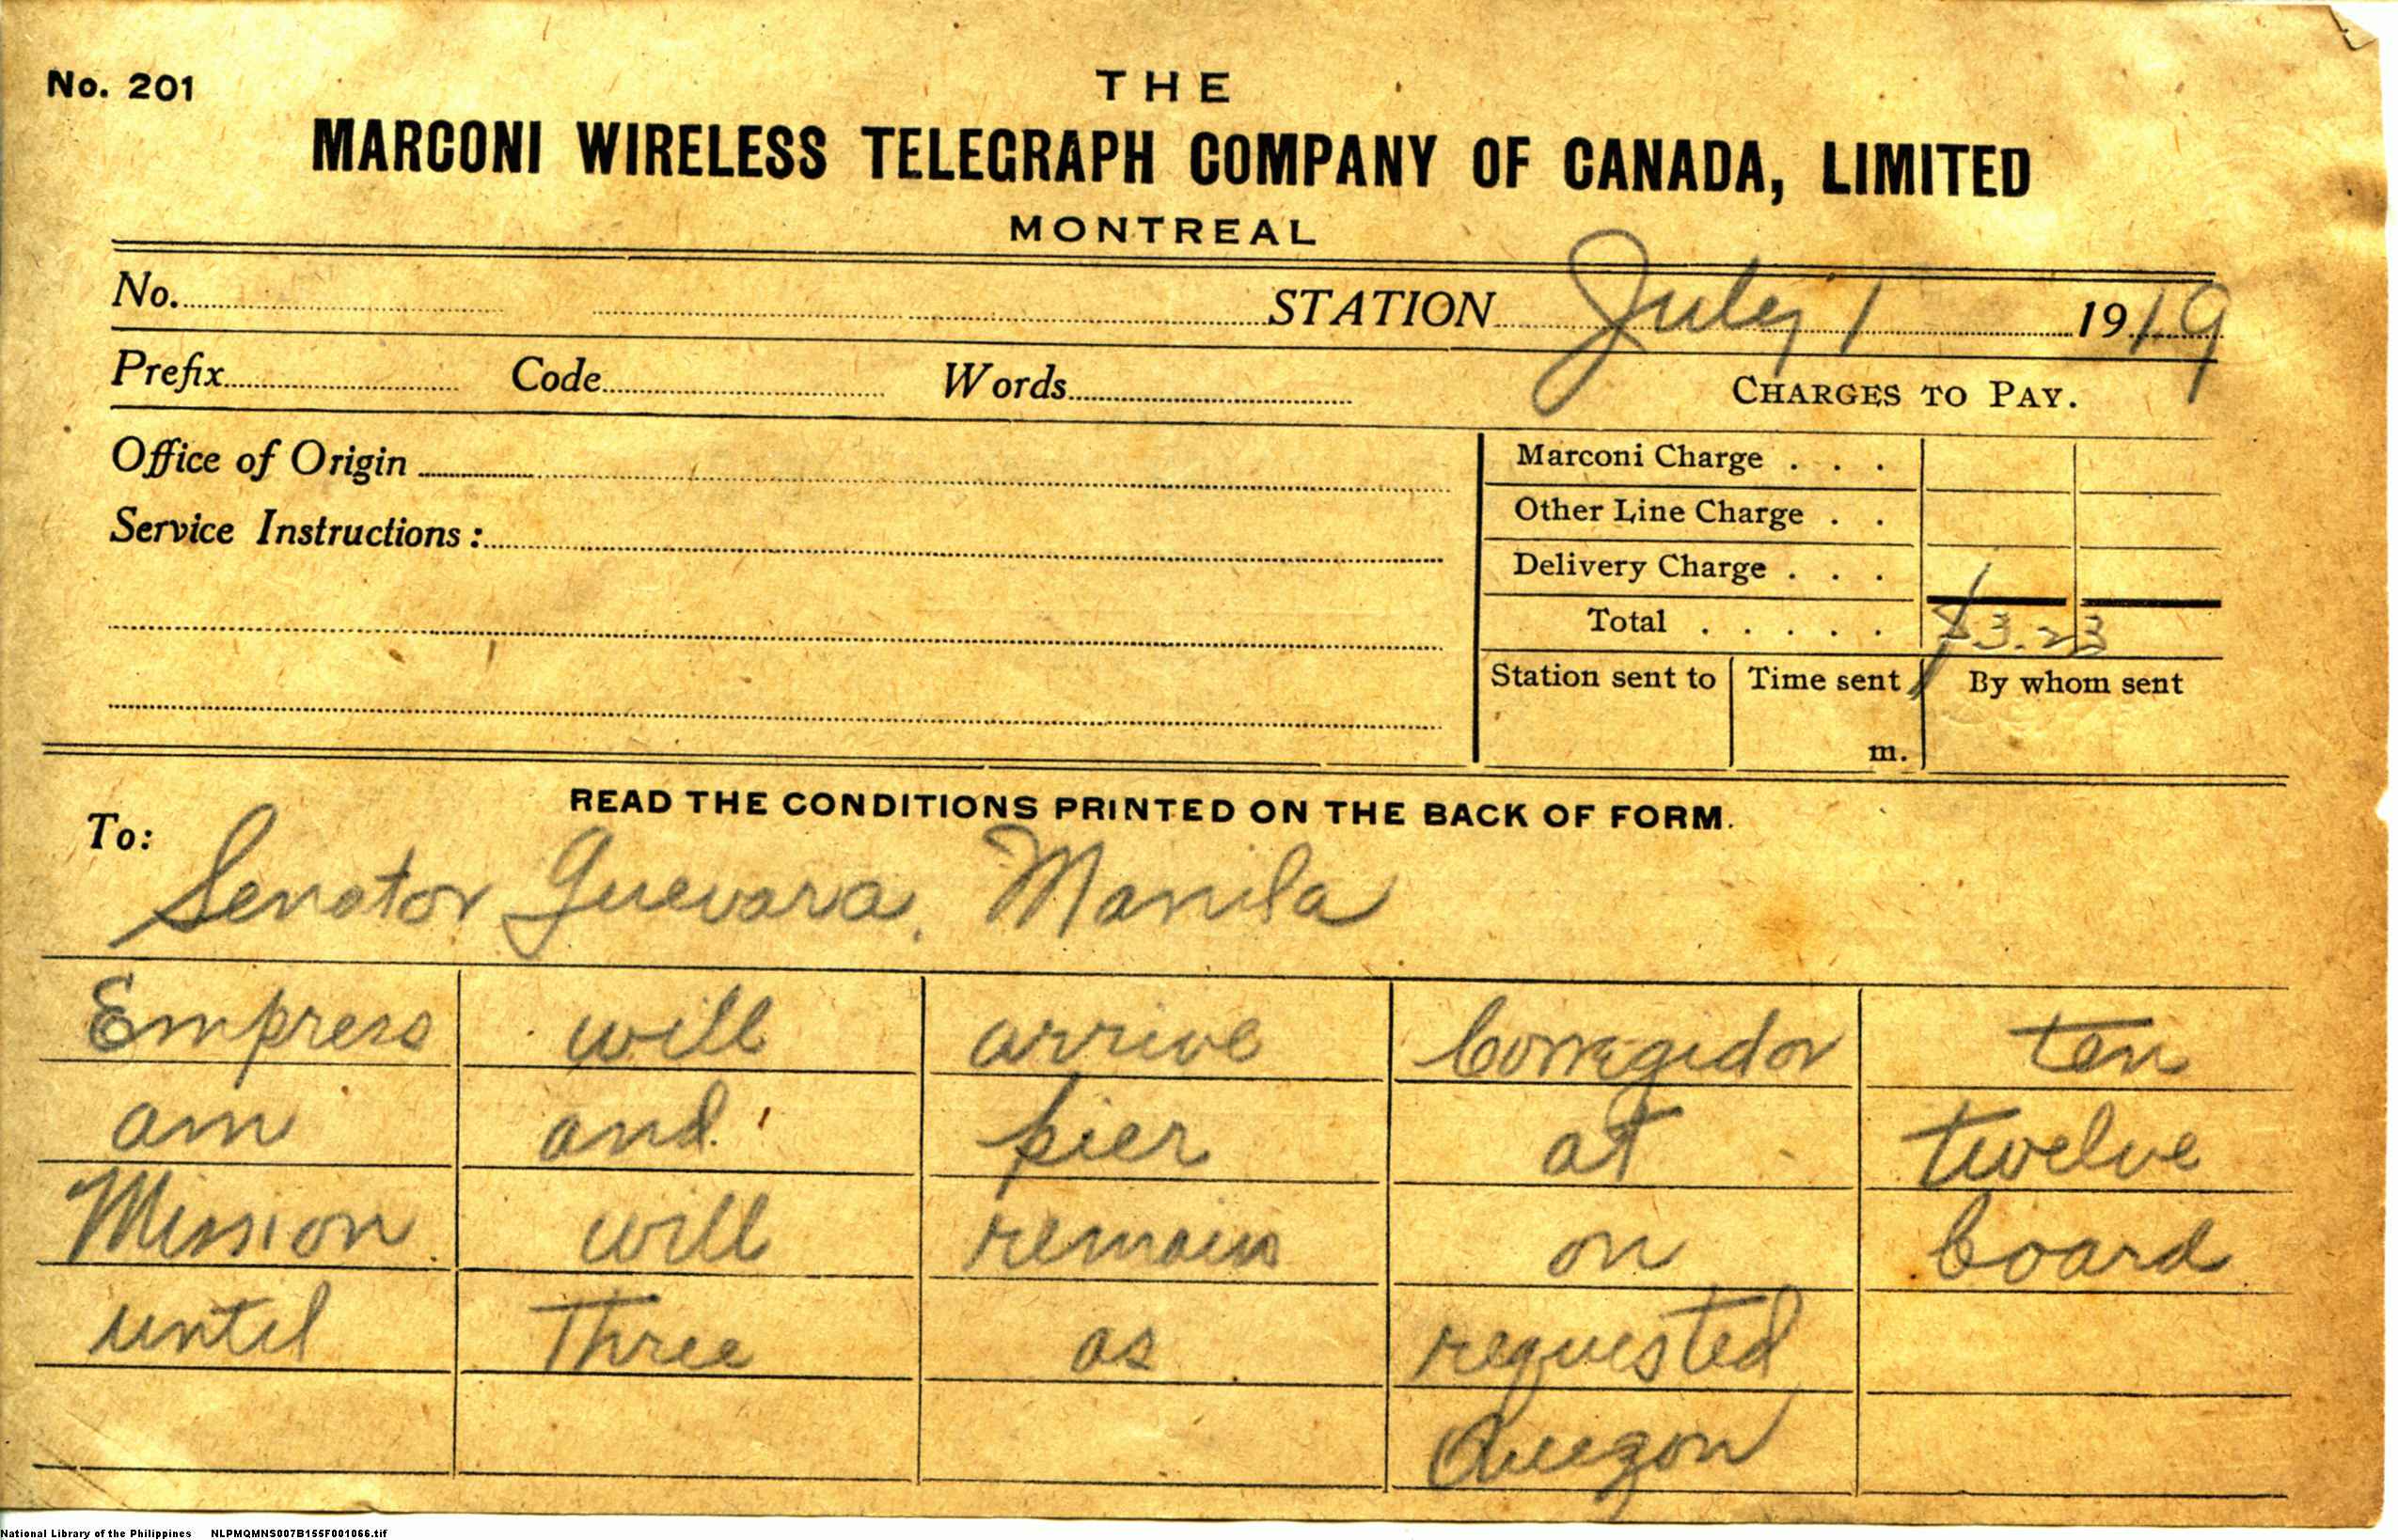 No. 201
THE
MARCONI WIRELESS TELEGRAPH COMPANY OF CANADA, LIMITED
MONTREAL
No. STATION July 1 1919
Prefix Code Words CHARGES TO PAY.
Office of Origin
Service Instructions:
Marconi Charge . . .
Other Line Charge . .
Delivery Charge . . .
Total . . . . . $3.23
Station sent to Time sent By whom sent
m.
READ THE CONDITIONS PRINTED ON THE BACK OF FORM.
To:
Senator Guevara, Manila
Empress will arrive Corregidor ten
am and pier at twelve
Mission will remain on board
until Three as requested
Quezon
National Library of the Philippines NLPMQMNS007B155F001066.tif